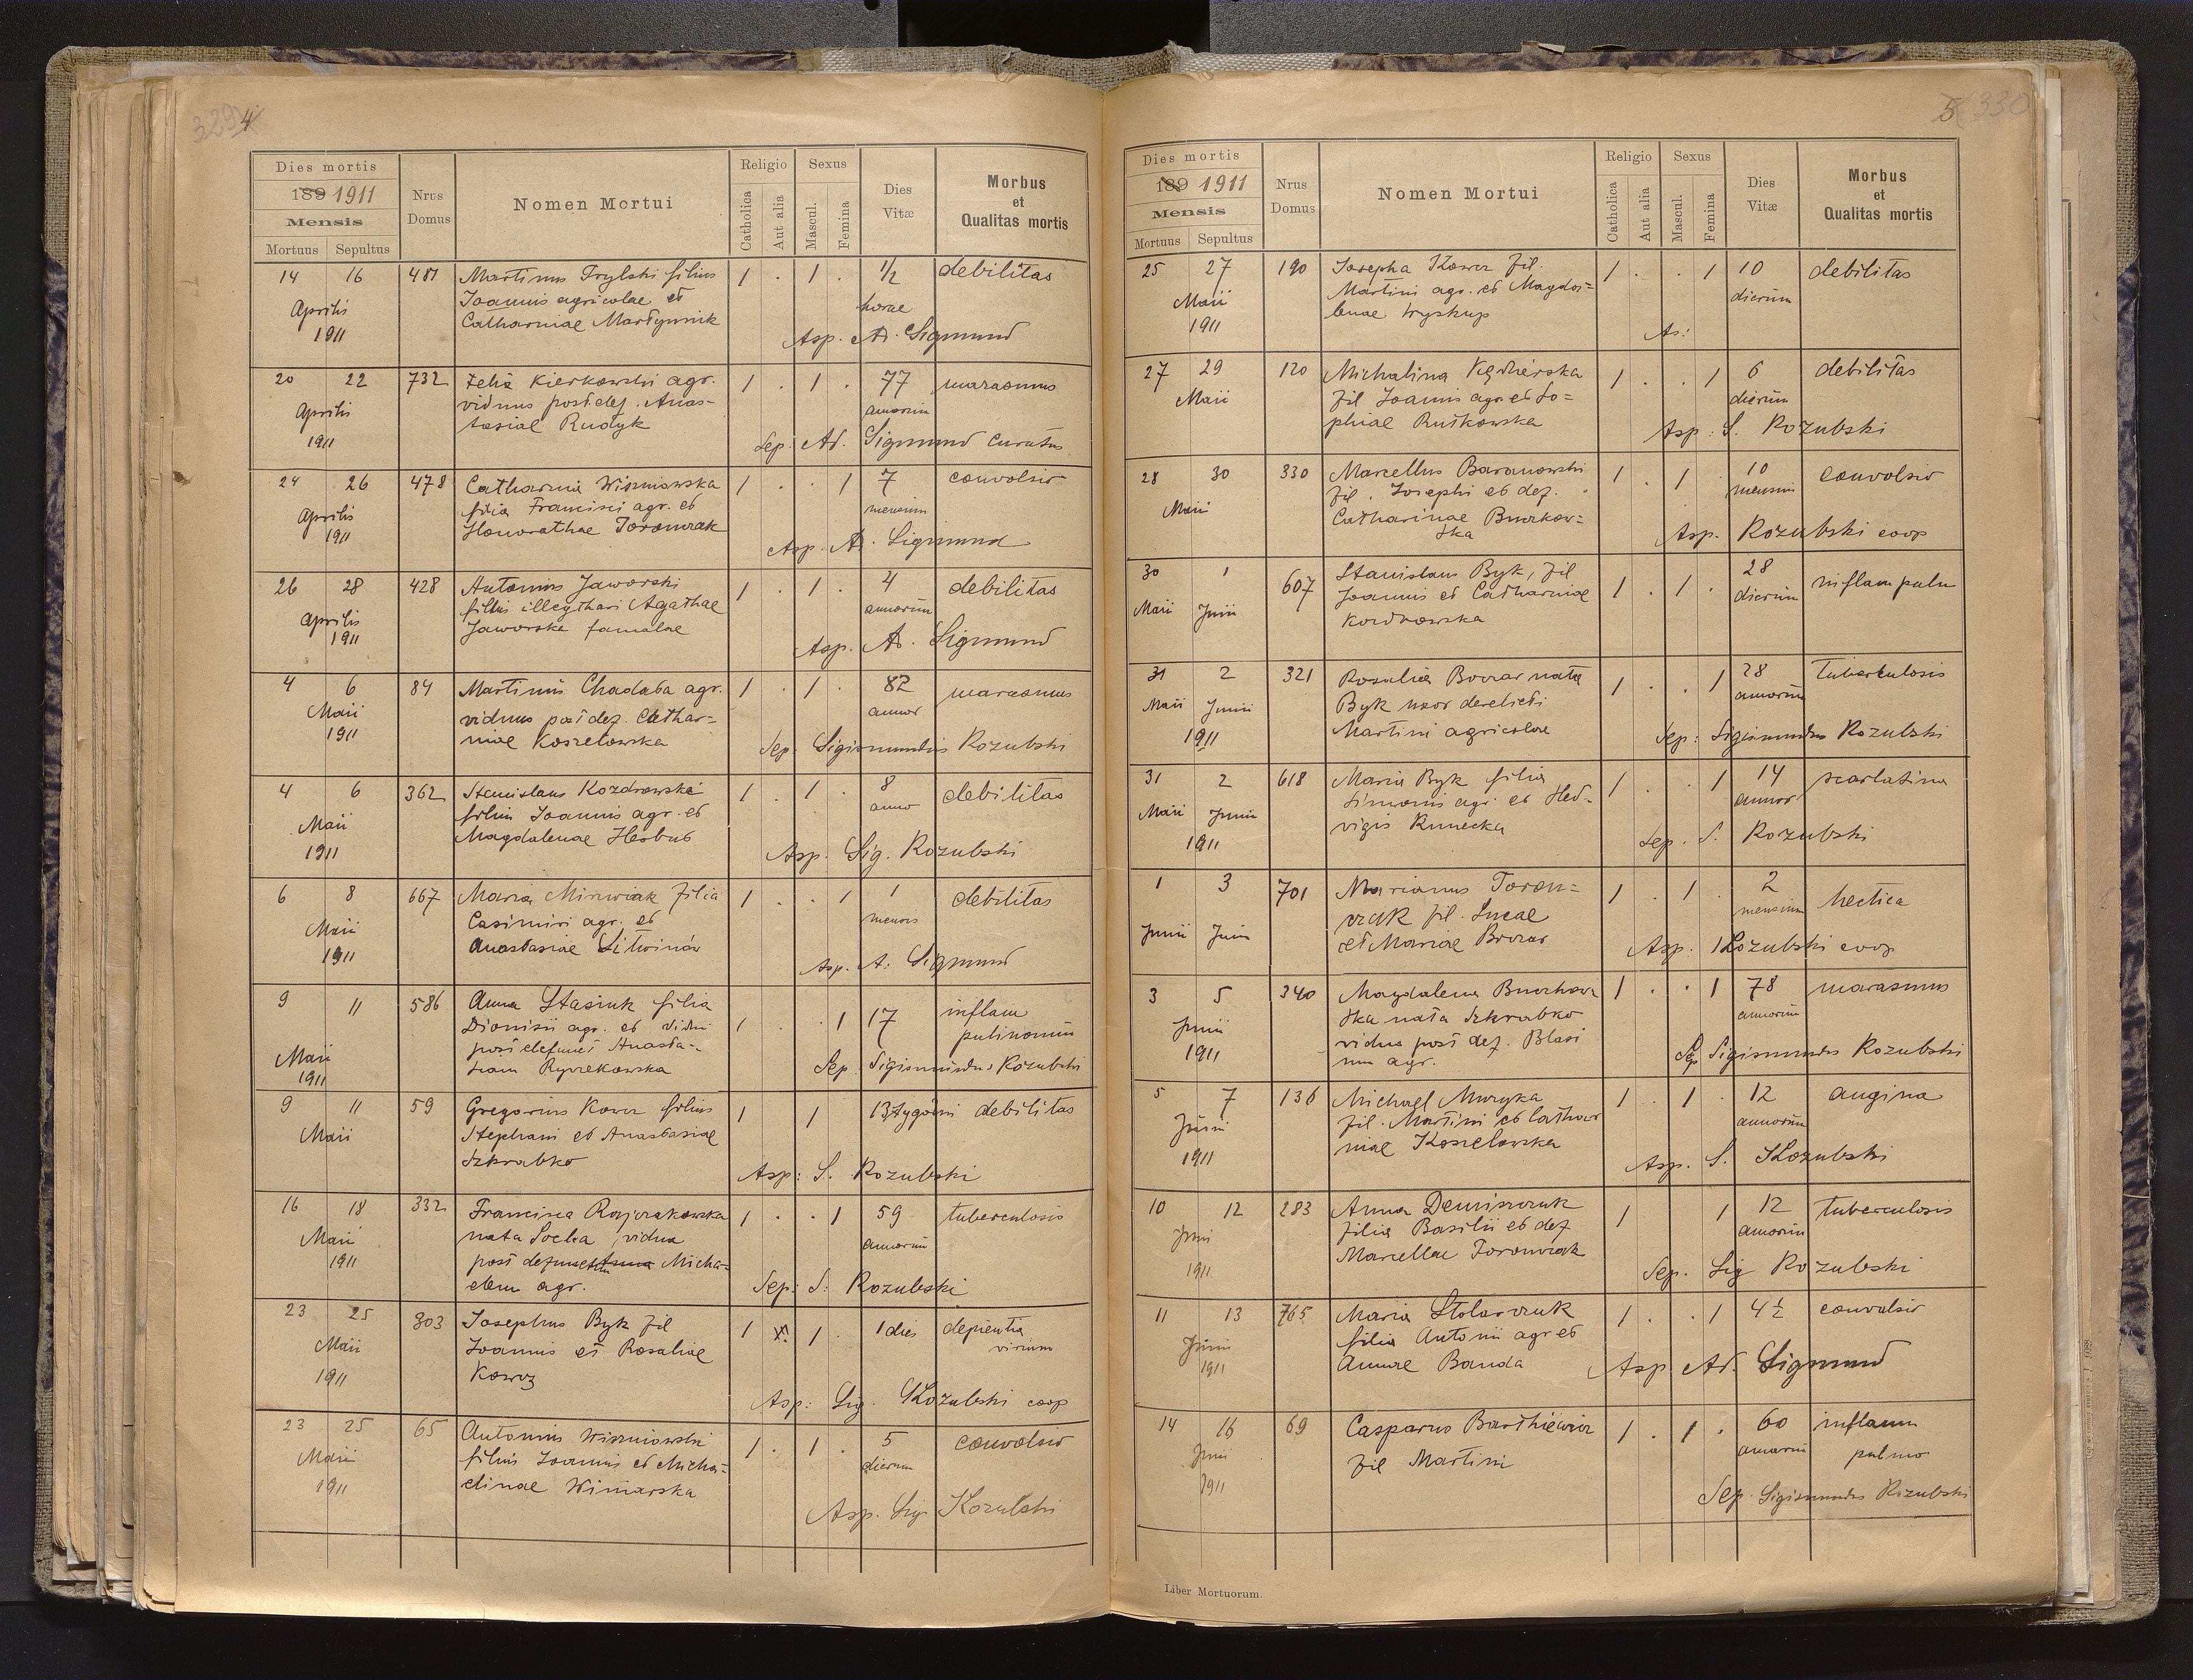 329 4
Dies mortis
189 1911
Mensis
Mortuus Sepultus
Nrus Domus
Nomen Mortui
Religio
Catholica
Aut alia
Sexus
Mascul.
Femina
Dies Vitæ
Morbus
et
Qualitas mortis
14 16 481 Martinus Trylski filius 1 . 1 . 1/2 debilitas
Aprilis Joannis agricolae et horae
1911 Catharinae Martynnik
Asp. A. Sigmund
20 22 732 Felix Kierkowski agr. 1 . 1 . 77 marasmus
Aprilis viduus post def. Anas- annorum
1911 tasiae Rudyk
Sep. Ad. Sigmund curatus
24 26 478 Catharina Wiszniowska 1 . . 1 7 convolsio
Aprilis filia Francisci agr. et mensium
1911 Honorathae Toronczak
Asp. A. Sigmund
26 28 428 Antonius Jaworski 1 . 1 . 4 debilitas
Aprilis filius illegthari Agathae annorum
1911 Jaworska famulae
Asp. A. Sigmund
4 6 84 Martinus Chadaba agr. 1 . 1 . 82 marasmus
Maii viduus post def. Cathar- annor
1911 inae Koszelowska
Sep: Sigismundus Kozubski
4 6 362 Stanislaus Kozdrowski 1 . 1 . 8 debilitas
Maii filius Joannis agr. et anno
1911 Magdalenae Herbut
Asp. Sig. Kozubski
6 8 667 Maria Minwiak filia 1 . . 1 1 debilitas
Maii Casimiri agr. et mensis
1911 Anastasiae Litwinów
Asp. A. Sigmund
9 11 586 Anna Stasiuk filia 1 . . 1 17 inflam
Dionisii agr. et pulmonum
Maii post defunct Anasta-
1911
Sep. Sigismundus Kozubski
9 11 59 Gregorius Kowcz filius 1 1 13 tygodni debilitas
Maii Stephani et Anastasiae
Szkrabko
Asp: S. Kozubski
16 18 332 Francisca Rajczakowska 1 . . 1 59 tuberculosis
Maii nata Socha, vidua annorum
1911 post defunctum Micha-
elem agr.
Sep: S: Kozubski
23 25 303 Josephus Byk fil 1 1 . 1 dies
Maii Joannis et Rosaliae virium
1911 Kowcz
Asp: Sig. Kozubski coop
23 25 65 Antonius Wiszniowski 1 . 1 . 5 convolsio
Maii filius Joannis et Micha- dierum
1911 elinae Winiarska
Asp. Sig Kozubski
5 330
Dies mortis
189 1911
Mensis
Mortuus Sepultus
Nrus Domus
Nomen Mortui
Religio
Catholica
Aut alia
Sexus
Mascul.
Femina
Dies Vitæ
Morbus
et
Qualitas mortis
25 27 190 Josepha Kowcz fil. 1 . . 1 10 debilitas
Maii Martini agr. et Magda= dierum
1911 lenae Wyskup
As:
27 29 120 Michalina Kędzierska 1 . . 1 6 debilitas
Maii fil Joannis agr et So= dierum
phiae Rutkowska
Asp: S. Kozubski
28 30 330 Marcellus Baranowski 1 . 1 . 10 convolsio
Maii fil. Josephi et def. mensium
Catharinae Burkow=
ska
Asp. Kozubski coop
30 1 607 Stanislaus Byk, fil 1 . 1 . 28 inflam pulm
Maii Junii Joannis et Catharinae dierum
Kozdrowska
31 2 321 Rosalia Bovczar nata 1 . . 1 28 tuberkulosis
Maii Junii Byk uxor derelicti annorum
1911 Martini agricolae
Sep: Sigismundus Kozubski
31 2 618 Maria Byk filia 1 . . 1 14 scarlatina
Maii Junii Simonis agr. et Hed- annor
1911 vigis Kunecka
Sep. S. Kozubski
1 3 701 Marianus Toron= 1 . 1 . 2 hectica
Junii Junii czak fil. Lucae mensium
et Mariae Bovczar
Asp: Kozubski coop
3 5 340 Magdalena Burkow 1 . . 1 78 marasmus
Junii ska nata Szkrabko annorum
1911 vidua post def. Blasi
um agr.
Sep Sigismundus Kozubski
5 7 136 Michael Muzyka 1 . 1 . 12 angina
Junii fil. Martini et Cathar annorum
1911 inae Koszelowska
Asp. S. Kozubski
10 12 283 Anna Demiszczuk 1 1 12 tuberculosis
Juni filia Basilii et def annorum
1911 Marcellae Toronczak
Sep. Sig Kozubski
11 13 765 Maria Stolarczuk 1 . . 1 4 1/2 convulsio
Junii filia Antonii agr et
1911 Annae Banda
Asp Ad. Sigmund
14 16 69 Casparus Barthiewicz 1 . 1 . 60 inflamm
Juni fil Martini annorum pulmo
1911
Sep. Sigismundus Kozubski
Liber Mortuorum.